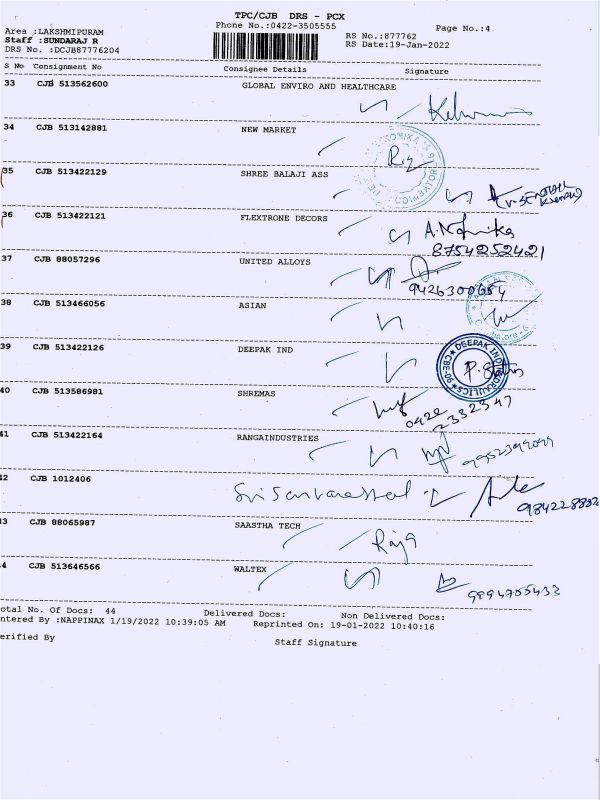 TPC/CJB DRS - PCX
Area :LAKSHMIPURAM
Phone No.:0422-3505555
Page No.:4
Staff :SUNDARAJ R
RS No.:877762
DRS No. :DCJB87776204
RS Date:19-Jan-2022
S No Consignment No Consignee Details Signature
33 CJB 513562600 GLOBAL ENVIRO AND HEALTHCARE
34 CJB 513142881 NEW MARKET
35 CJB 513422129 SHREE BALAJI ASS
36 CJB 513422121 FLEXTRONE DECORS
8754252421
37 CJB 88057296 UNITED ALLOYS
9426300654
38 CJB 513466056 ASIAN
39 CJB 513422126 DEEPAK IND
DEEPAK IND HYDRAULICS CBE-
40 CJB 513586981 SHREMAS
0422
2332347
41 CJB 513422164 RANGAINDUSTRIES
42 CJB 1012406
43 CJB 88065987 SAASTHA TECH Raja
44 CJB 513646566 WALTEX
9994705433
Total No. Of Docs: 44 Delivered Docs: Non Delivered Docs:
Entered By :NAPPINAX 1/19/2022 10:39:05 AM Reprinted On: 19-01-2022 10:40:16
Verified By Staff Signature